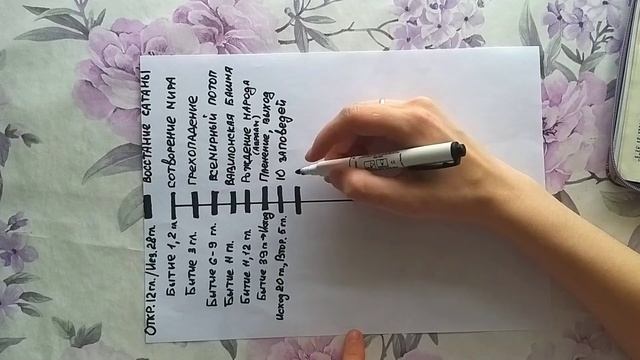 ВОССТАНИЕ САТАНЫ
ОТКР. 12 гл./Иез. 28 гл.
СОТВОРЕНИЕ МИРА
БЫТИЕ 1, 2 гл.
ГРЕХОПАДЕНИЕ
БЫТИЕ 3 гл.
ВСЕМИРНЫЙ ПОТОП
БЫТИЕ 6-9 гл.
ВАВИЛОНСКАЯ БАШНЯ
БЫТИЕ 11 гл.
РОЖДЕНИЕ НАРОДА
БЫТИЕ 11, 12 гл.
Пленение, выход
БЫТИЕ 39 гл → Исход
10 ЗАПОВЕДЕЙ
Исход 20 гл, Втор. 5 гл.